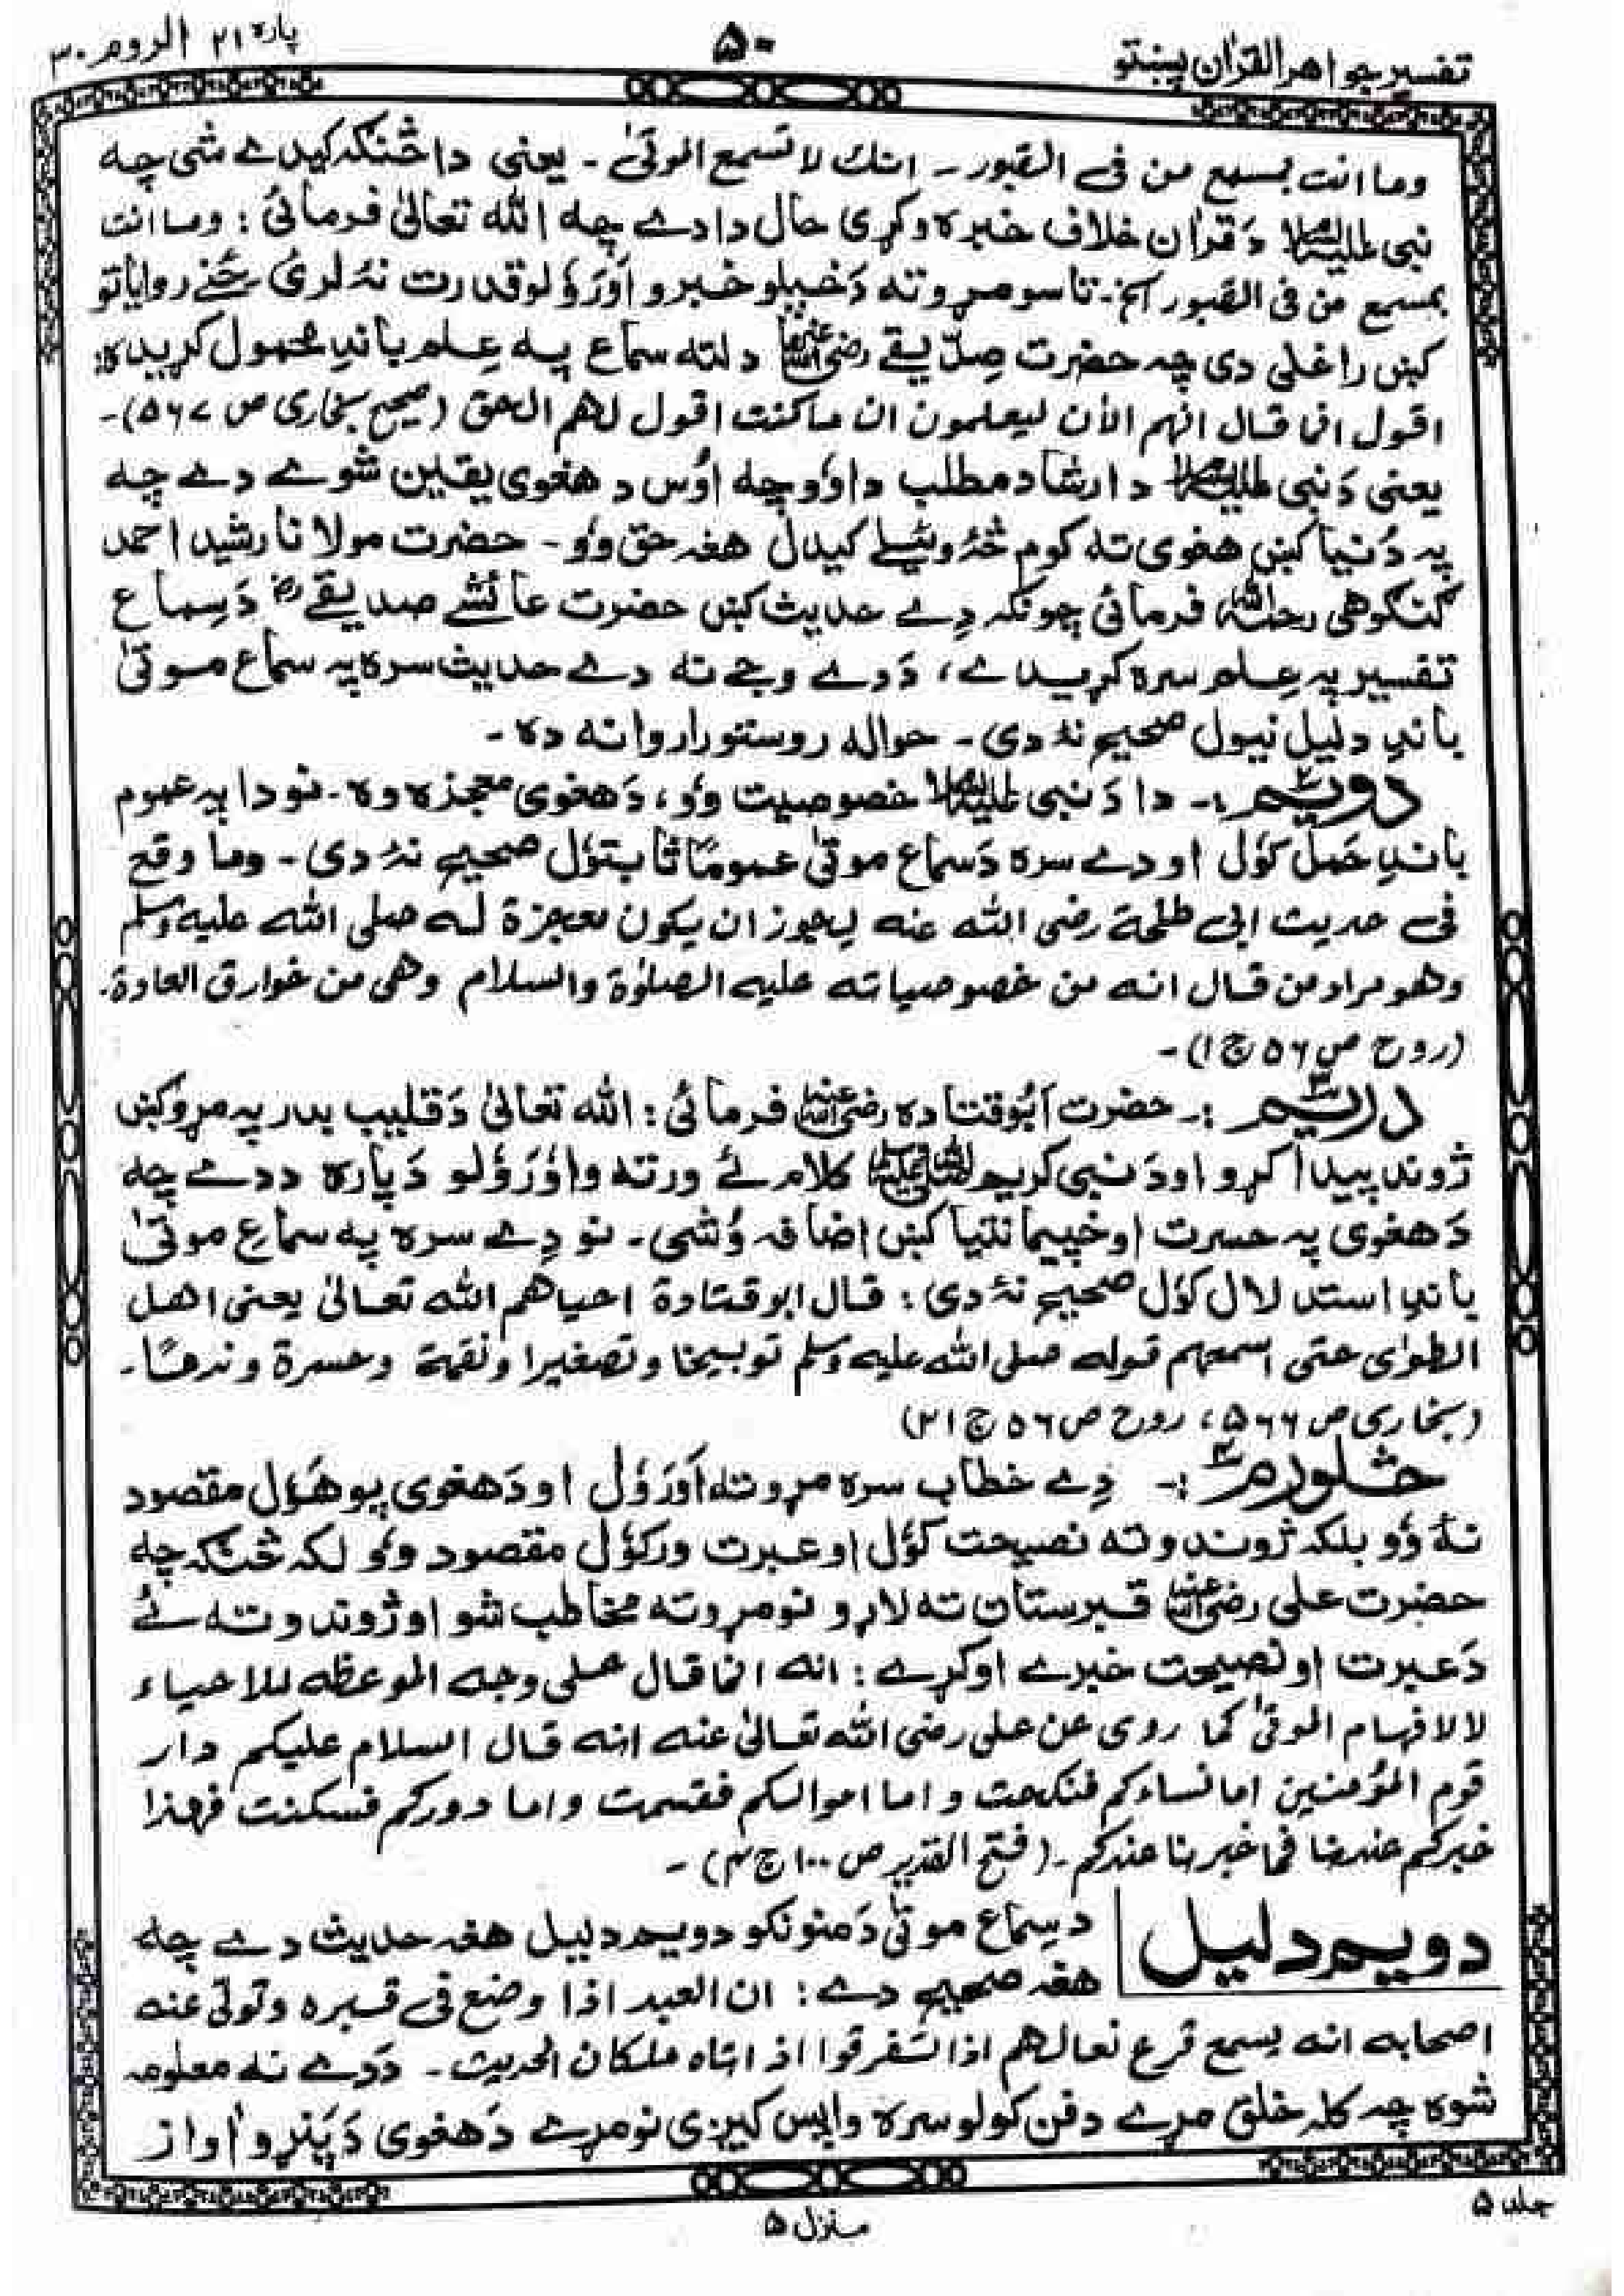 تفسیر جواهر القرآن پښتو
۵۰
پاره ۲۱ الروم ۳۰
وما انت بمسمع من فی القبور ـ انك لا تسمع الموتیٰ ـ یعنی دا څنګه کیدے شی چه
نبی علیه السلام دَ قرآن خلاف خبره وکړی حال دا دے چه الله تعالیٰ فرمائی : وما انت
بمسمع من فی القبور الخ ـ تاسو مړو ته دَ خپلو خبرو اَوَرَوُلو قدرت نهٔ لرئ ځنے روایاتو
کښ راغلی دی چه حضرت صدّیقے رضی الله عنها دلته سماع په عِلم باندِ محمول کړیده :
اقول انما قال انهم الأن لیعلمون ان ماکنت اقول لهم الحق (صحیح بخاری ص ۵۶۷) ـ
یعنی دَ نبی علیه السلام د ارشاد مطلب دا وٶ چه اوُس د هغوی یقین شوے دے چه
په دُنیا کښ هغوی ته کوم څهٔ وئیلے کیدل هغه حق وٶ ـ حضرت مولانا رشید احمد
گنگوهی رحمه الله فرمائی چونکه دِے حدیث کښ حضرت عائشے صدیقے رض دَ سِماع
تفسیر په عِلم سره کړیدے ، دَ دے وجے نه دے حدیث سره په سماع موتیٰ
باندِ دلیل نیول صحیح نهٔ دی ـ حواله روستو راروانه ده ـ
دویم ۲ :ـ دا دَ نبی علیه السلام خصوصیت وٶ ، دَ هغوی معجزه وه ـ نو دا په عموم
باندِ حَمل کوُل او دے سره دَ سماع موتیٰ عمومًا ثابتوُل صحیح نهٔ دی ـ وما وقع
فی حدیث ابی طلحة رضی الله عنه یجوز ان یکون معجزة له صلی الله علیه وسلم
وهو مراد من قال انه من خصوصیاته علیه الصلوٰة والسلام وهی من خوارق العادة ـ
(روح ص ۵۶ ج ۲۱) ـ
دریم ۳ :ـ حضرت اَبُو قتاده رضی الله عنه فرمائی : الله تعالیٰ دَ قلیب بدر په مړو کښ
ژوند پیدا کړو او دَ نبی کریم صلی الله علیه وسلم کلام ئے ورته واوُرَوُلو دَ پاره ددے چه
دَ هغوی په حسرت او خپیمانتیا کښ اضافه وُشی ـ نو دِے سره په سماع موتیٰ
باندِ استدلال کوُل صحیح نهٔ دی : قال ابو قتادة احیاهم الله تعالیٰ یعنی اهل
الطوٰی حتی اسمعهم قوله صلی الله علیه وسلم توبیخا وتصغیرا ونقمة وحسرة وندمًا ـ
(بخاری ص ۵۶۶ ، روح ص ۵۶ ج ۲۱)
څلورم ۴ :ـ دِے خطاب سره مړو ته اَوَرَوُل او دَ هغوی پوهَوُل مقصود
نهٔ وٶ بلکه ژوندو ته نصیحت کوُل او عبرت ورکوُل مقصود وٶ لکه څنګه چه
حضرت علی رضی الله عنه قبرستان ته لاړو نو مړو ته مخاطب شو او ژوندو ته ئے
دَ عبرت او نصیحت خبرے اوکړے : انه انما قال علی وجه الموعظه للاحیاء
لا لافهام الموتیٰ کما روی عن علی رضی الله تعالیٰ عنه انه قال السلام علیکم دار
قوم المؤمنین اما نساءکم فنکحت و اما اموالکم فقسمت واما دورکم فسکنت فهذا
خبرکم عندنا فما خبرنا عندکم ـ (فتح القدیر ص ۱۰۰ ج ۴) ـ
دویم دلیل
د سِماع موتیٰ دَ منونکو دویم دلیل هغه حدیث دے چه
هغه صحیح دے : ان العبد اذا وضع فی قبره وتولّی عنه
اصحابه انه یسمع قرع نعالهم اذا تفرقوا اذ اتاه ملکان الحدیث ـ دَدے نه معلومه
شوه چه کله خلق مړے دفن کولو سره واپس کیږی نو مړے دَ هغوی دَ پَنړو آواز
جلد ۵
منزل ۵